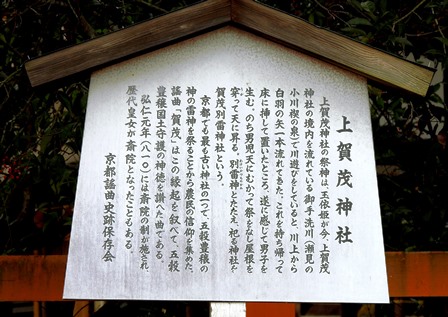 上賀茂神社
上賀茂神社の祭神は、玉依姫が今、上賀茂
神社の境内を流れている御手洗川(瀬見の
小川楔の泉)で川遊びをしていると、川上から
白羽の矢一本流れてきた。これを持ち帰って
床に挿して置いたところ、遂に感じて男子を
生む。のち男児天にむかって祭をなし屋根を
穿って天に昇る。別雷神とたたえ、祀る神社を
賀茂別雷神社という。
京都でも最も古い神社の一つで、五穀豊穣の
神の雷神を祭ることから農民の信仰を集めた。
謡曲「賀茂」はこの縁起を叙べて、五穀
豊穣国土守護の神徳を讃えた曲である。
弘仁元年(八一〇)には斎院の制が施され、
歴代皇女が斎院となったこともある。
京都謡曲史跡保存会